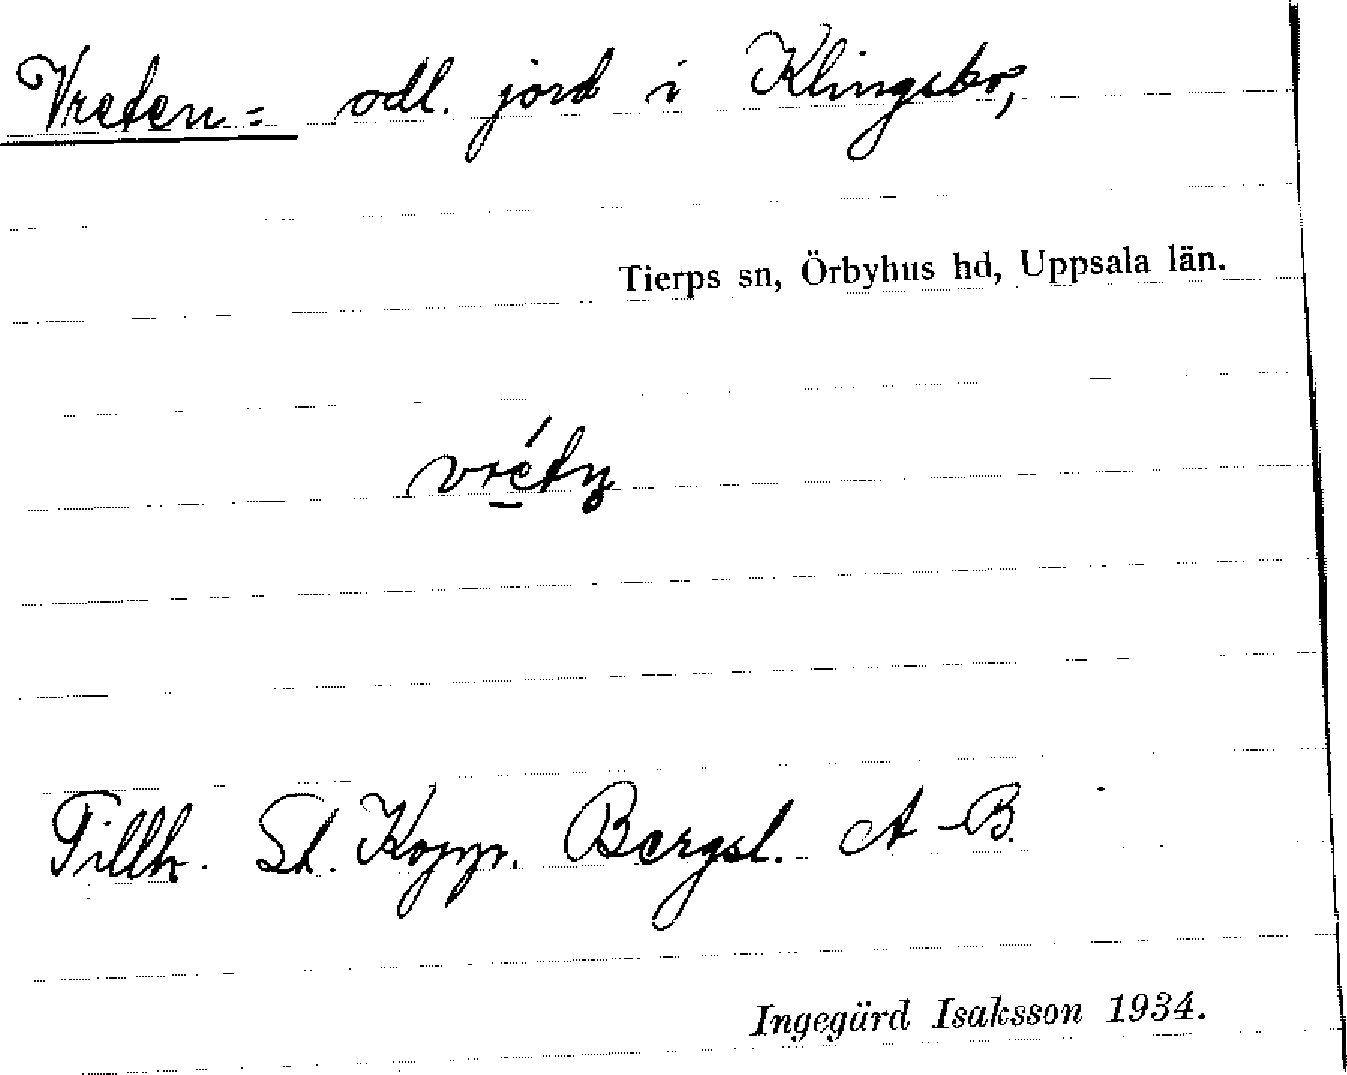 Vreten = odl. jord i Klingsbo,
Tierps sn, Örbyhus hd, Uppsala län.
Tillh. St. Kopp. Bergsl. A-B.
Ingegärd Isaksson 1934.